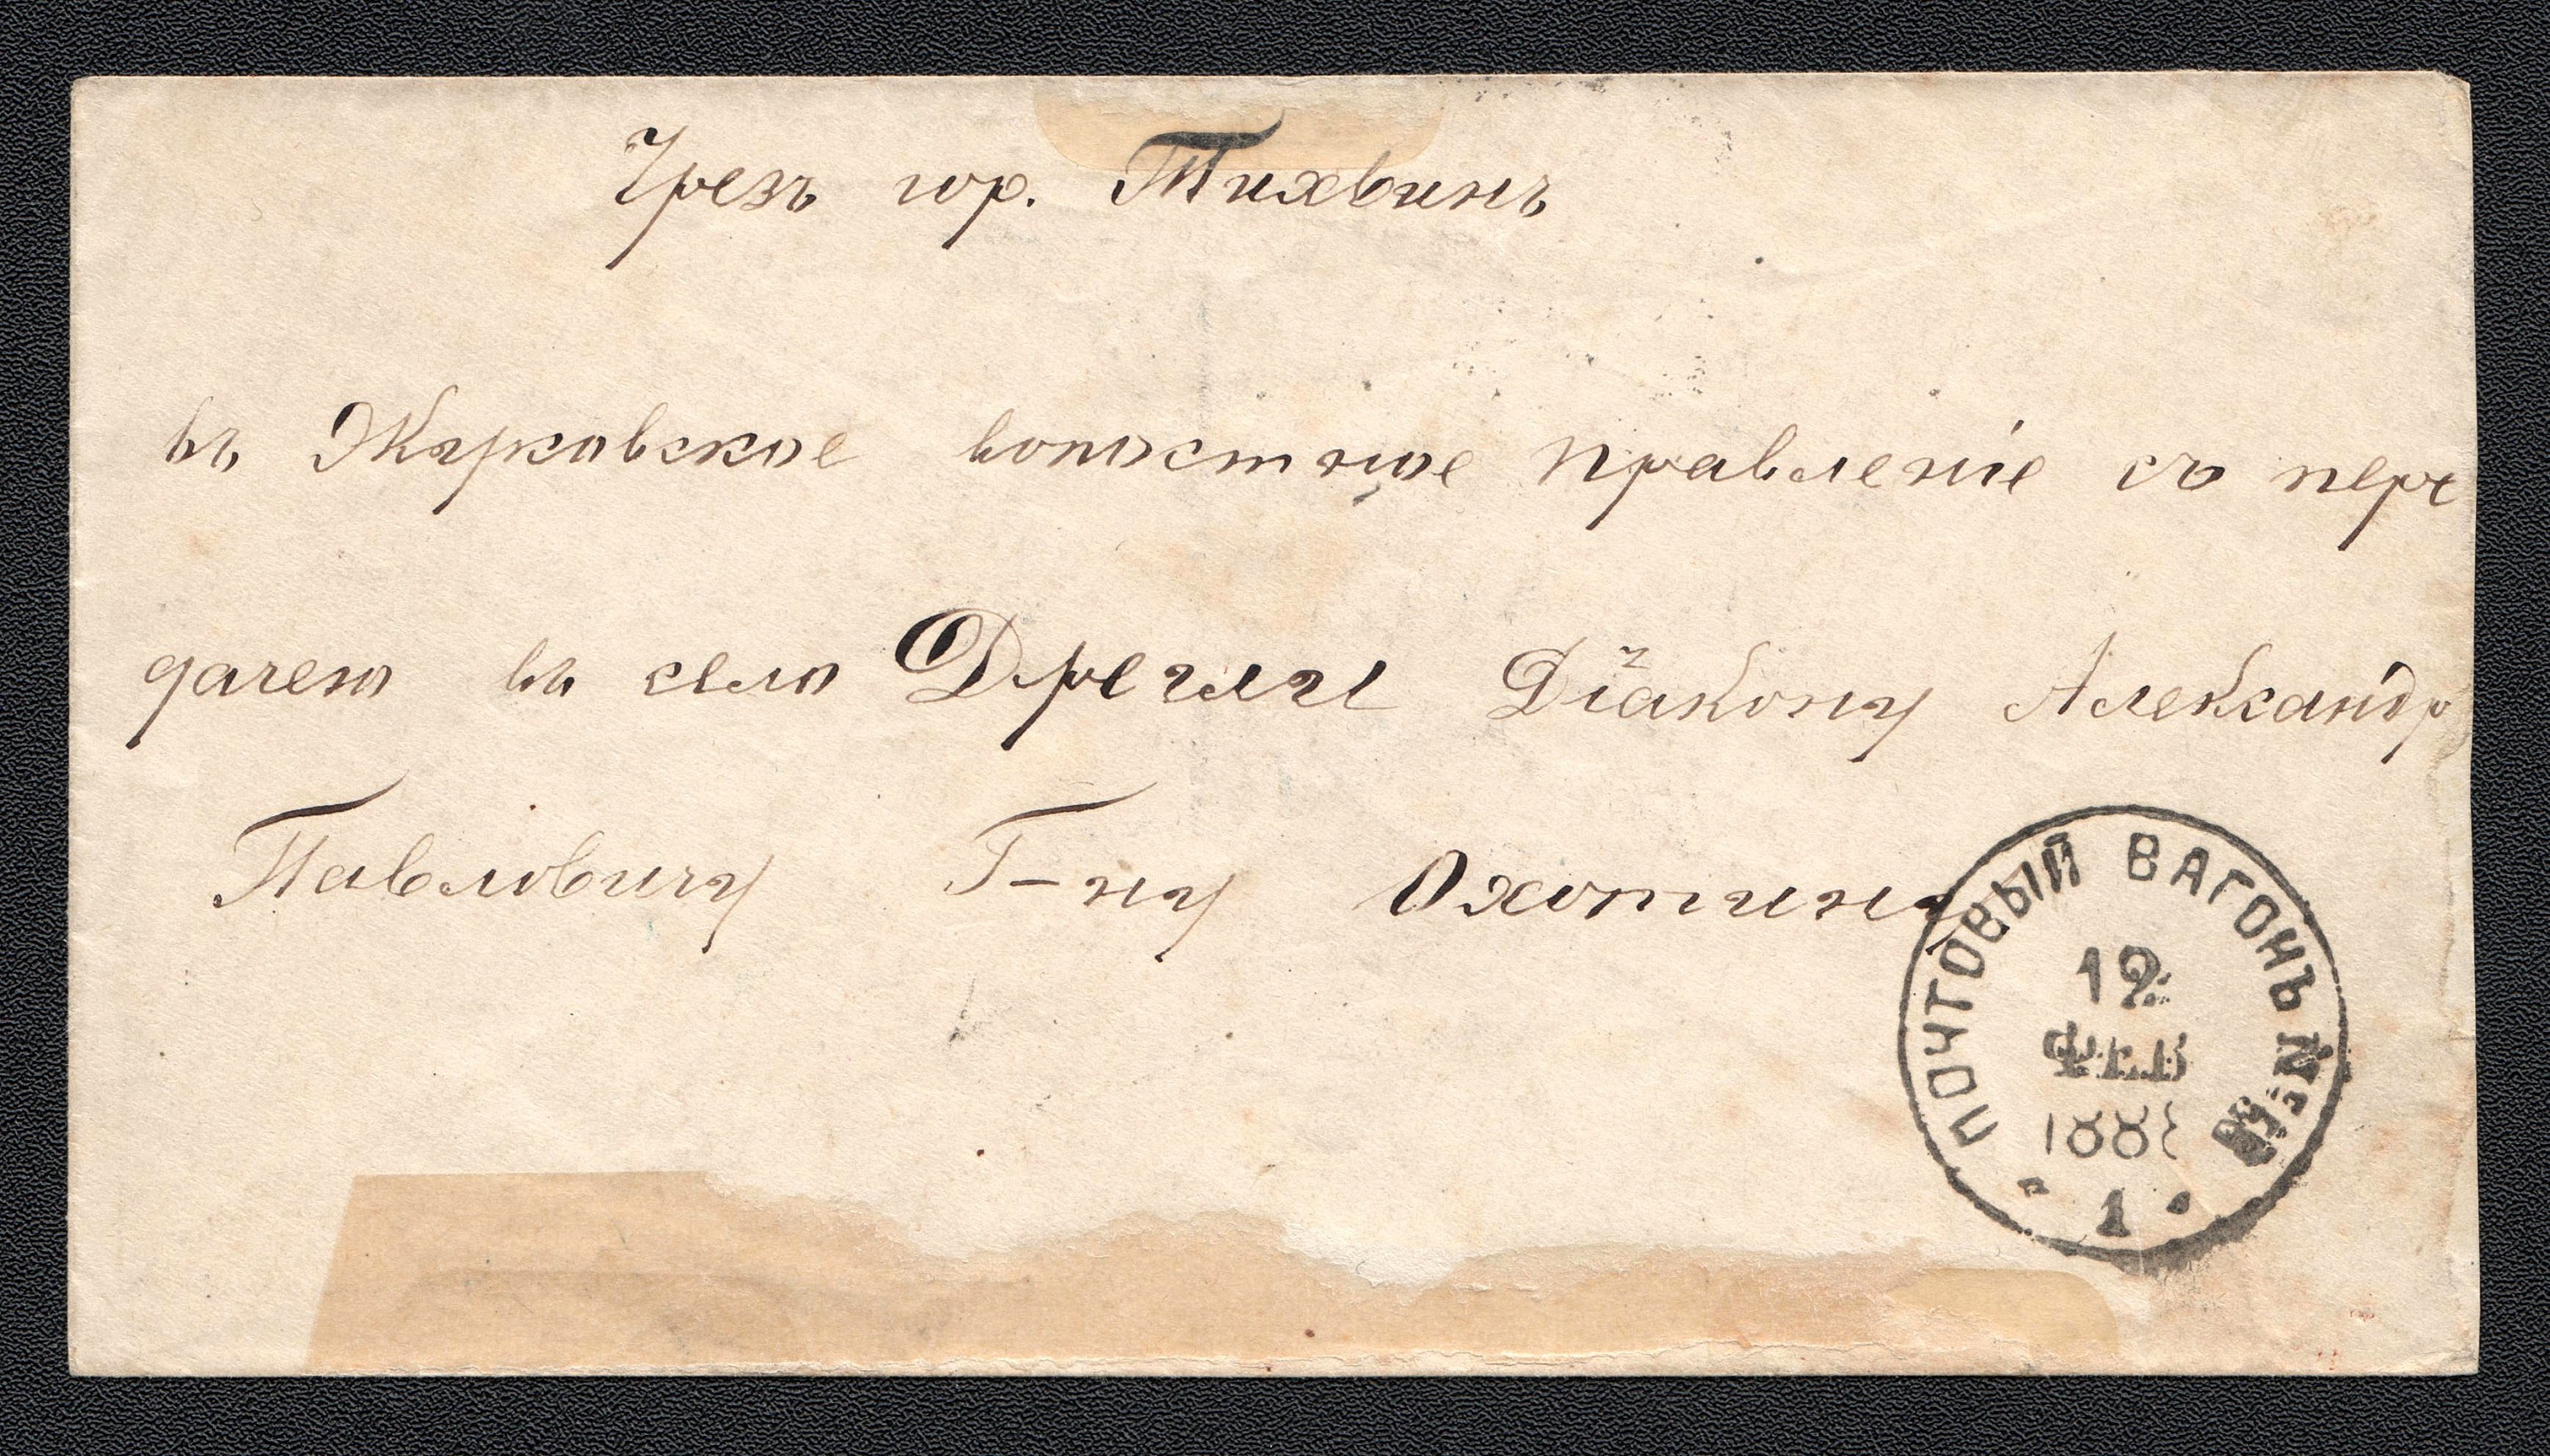 Чрезъ гор. Тихвинъ
въ Жарковское волостное правленіе съ пере
дачею въ село Дрегли Діакону Александр
Павловичу Г-ну Охотину
ПОЧТОВЫЙ ВАГОНЪ №
12
ФЕВ
188
1